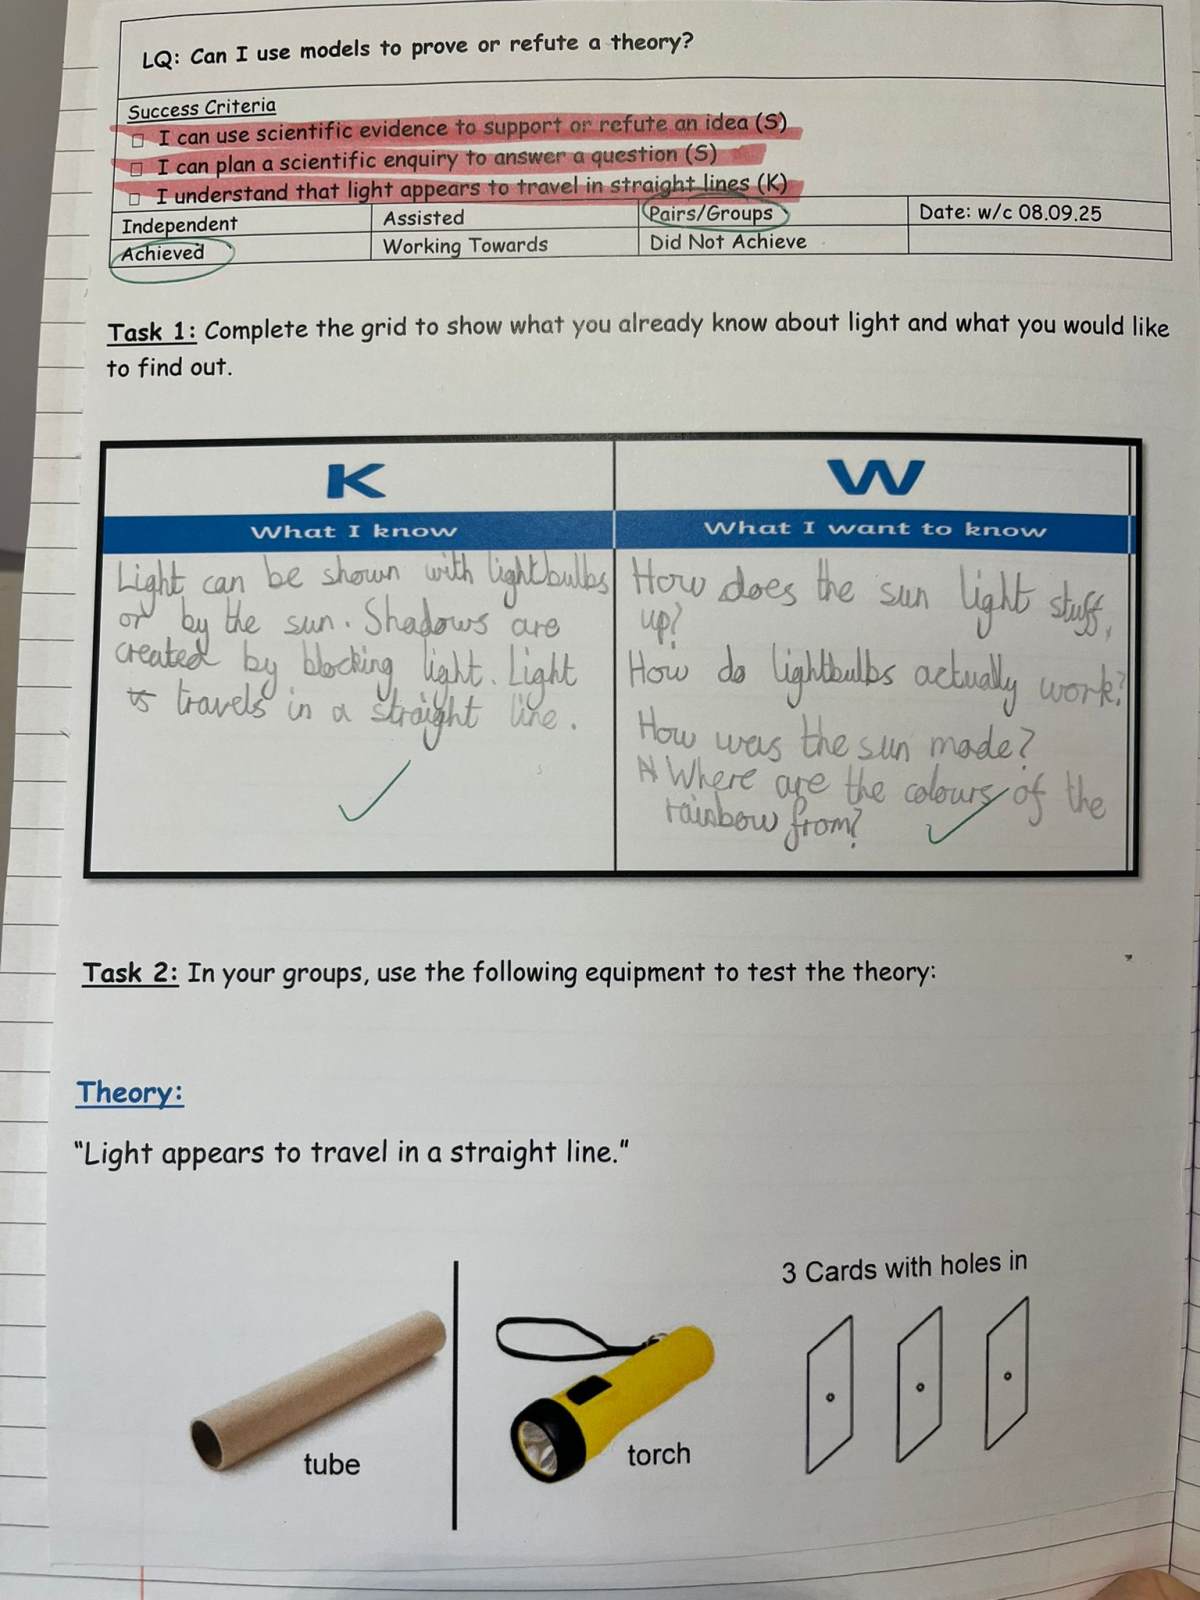 LQ: Can I use models to prove or refute a theory?
Success Criteria
□ I can use scientific evidence to support or refute an idea (S)
□ I can plan a scientific enquiry to answer a question (S)
□ I understand that light appears to travel in straight lines (K)
Independent Assisted Pairs/Groups Date: w/c 08.09.25
Achieved Working Towards Did Not Achieve
Task 1: Complete the grid to show what you already know about light and what you would like
to find out.
K
What I know
Light can be shown with lightbulbs
or by the sun. Shadows are
created by blocking light. Light
travels in a straight line.
W
What I want to know
How does the sun light stuff,
up?
How do lightbulbs actually work?
How was the sun made?
Where are the colours of the
rainbow from?
Task 2: In your groups, use the following equipment to test the theory:
Theory:
"Light appears to travel in a straight line."
tube
torch
3 Cards with holes in